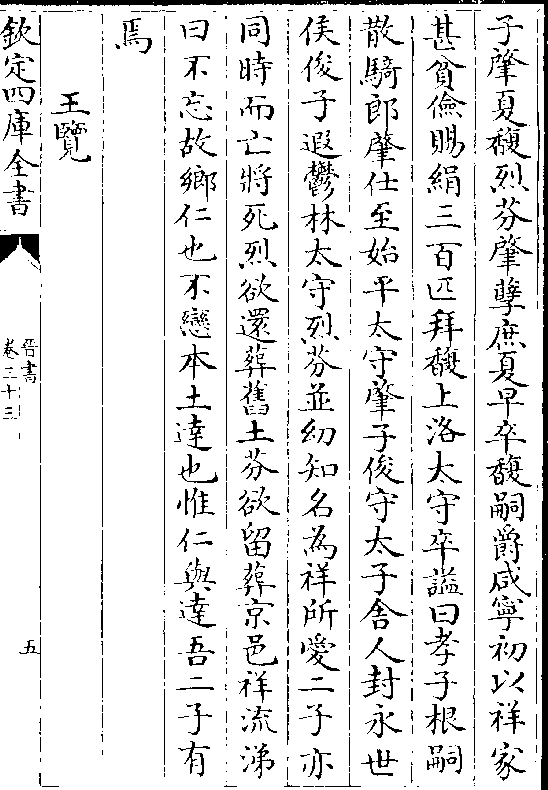 子肇夏馥烈芬肇孽庶夏早卒馥嗣爵咸寧初以祥家
甚貧儉賜絹三百匹拜馥上洛太守卒謚曰孝子根嗣
散騎郎肇仕至始平太守肇子俊守太子舍人封永世
侯俊子遐鬱林太守烈芬並幼知名為祥所愛二子亦
同時而亡將死烈欲還葬舊土芬欲留葬京邑祥流涕
曰不忘故鄉仁也不戀本土達也惟仁與達吾二子有
焉
王覽
欽定四庫全書
晉書
卷三十三
五